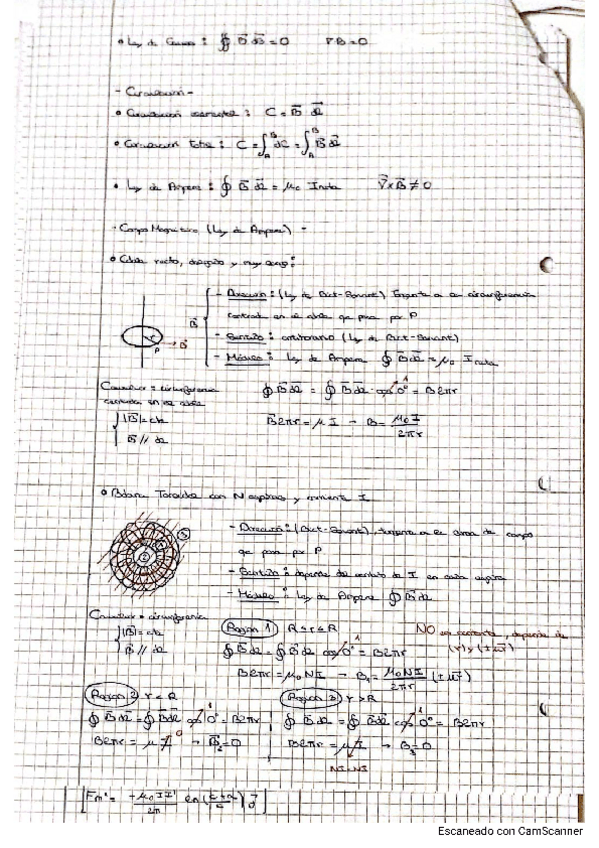 • Ley de Gauss : ∯ B⃗ ds⃗ = 0 ∇B = 0
- Circulación -
• Circulación elemental : C = B⃗ dl⃗
• Circulación total : C = ∫_A^B dC = ∫_A^B B⃗ dl⃗
• Ley de Ampere : ∮ B⃗ dl⃗ = μ₀ I neta ∇⃗ x B⃗ ≠ 0
- Campo Magnético (Ley de Ampere) -
• Cable recto, delgado y muy largo :
B⃗
- Dirección : (Ley de Biot-Savart) tangente a la circunferencia
centrada en el cable que pasa por P
- Sentido : antihorario (Ley de Biot-Savart)
- Módulo : Ley de Ampere ∮ B⃗ dl⃗ = μ₀ I neta
r
P
B⃗
circunferencia
centrada en el cable
|B⃗| = cte
B⃗ // dl
∮ B⃗ dl⃗ = ∮ B⃗ dl⃗ · cos 0° = B2πr
B2πr = μ I → B = μ₀ I / 2πr
• Bobina Toroidal con N espiras y corriente I
- Dirección : (Biot-Savart), tangente a la línea de campo
que pasa por P.
- Sentido : depende del sentido de I en cada espira
- Módulo : Ley de Ampere ∮ B⃗ dl⃗
circunferencia
|B⃗| = cte
B⃗ // dl
Región 1) R ≤ r ≤ R
NO es constante, depende de
(r) y
∮ B⃗ dl⃗ = ∮ B⃗ dl⃗ cos 0° = B2πr
B2πr = μ₀ N I → B₁ = μ₀ N I / 2πr
Región 2) r < R
∮ B⃗ dl⃗ = ∮ B⃗ dl⃗ cos 0° = B2πr
B2πr = μ I 0 → B⃗₂ = 0
Región 3) r > R
∮ B⃗ dl⃗ = ∮ B⃗ dl⃗ cos 0° = B2πr
B2πr = μ I → B₃ = 0
NI - NI
Escaneado con CamScanner